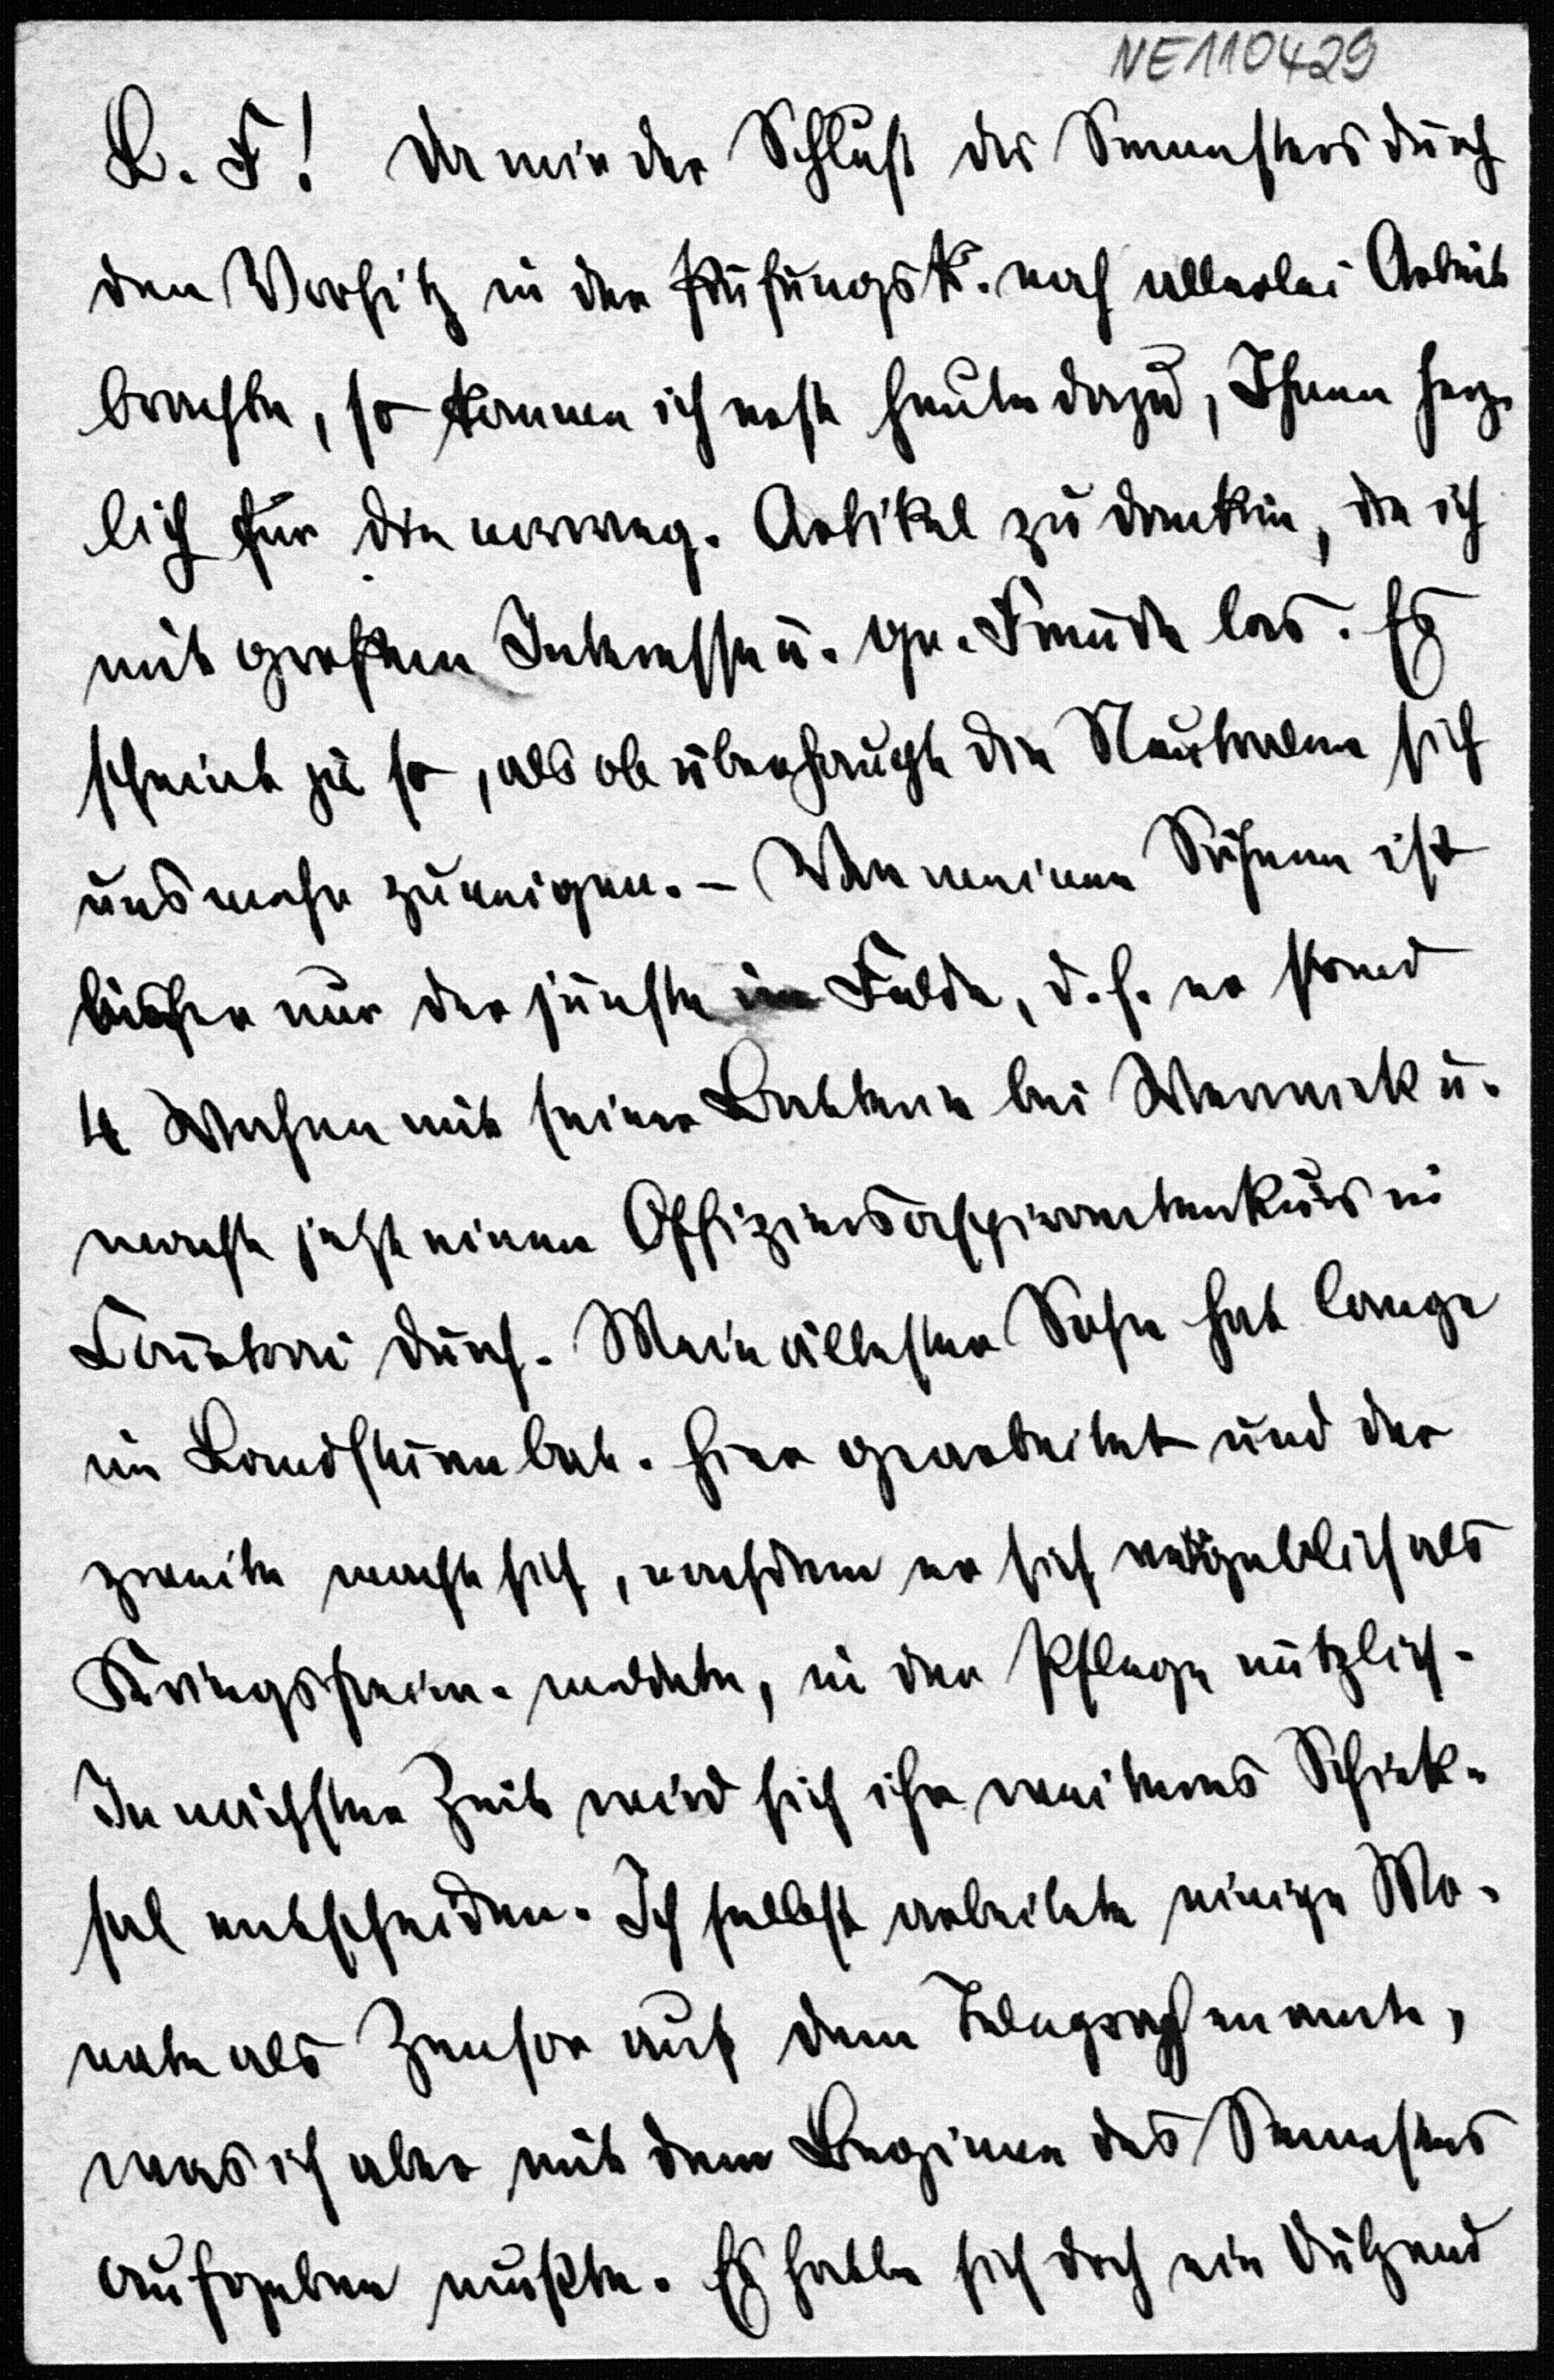 NE110429
L. F! Da mir der Schluß des Semesters durch
den Vorsitz in der PrüfungsK. noch allerlei Arbeit
brachte, so komme ich erst heute dazu, Ihnen herz-
lich für die norweg. Artikel zu danken, die ich
mit großem Interesse u. gr. Freude las. Es
scheint ja so, als ob überhaupt die Neutralen sich
uns mehr zuneigen. – Von meinen Söhnen ist
bisher nur der jünste im Felde, d. h. er stand
4 Wochen mit seiner Batterie bei Wervick u.
macht jetzt einen Offiziersaspirantenkurs in
Tourkoi durch. Mein ältester Sohn hat lange
im Landsturmbat. hier gearbeitet und der
zweite macht sich, nachdem er sich vergeblich als
Kriegsfreiw. meldete, in der Pflege nützlich.
In nächster Zeit wird sich ihr weiteres Schick-
sal entscheiden. Ich selbst arbeitete einige Mo-
nate als Zensor auf dem Telegraphenamte,
was ich aber mit dem Beginne des Semesters
aufgeben mußte. Es hatte sich doch ein Dutzend